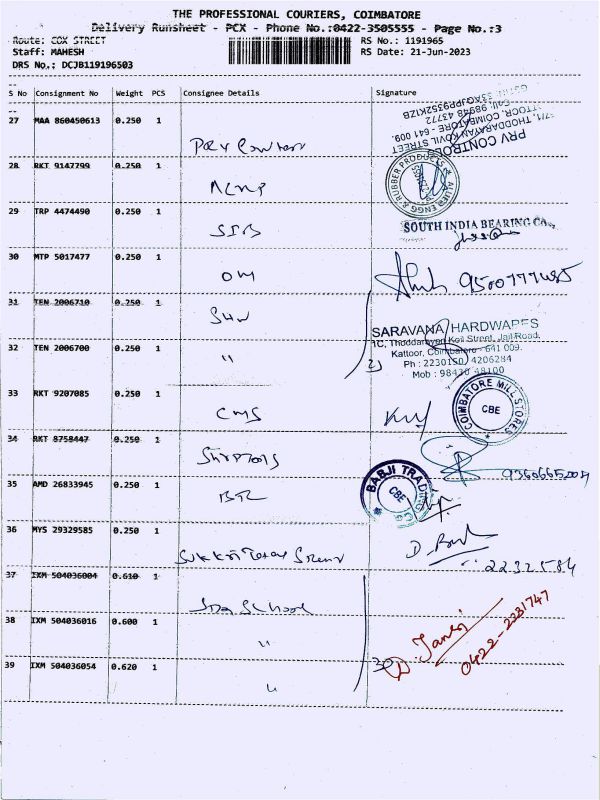 THE PROFESSIONAL COURIERS, COIMBATORE
Delivery Runsheet - PCX - Phone No.:0422-3505555 - Page No.:3
Route: COX STREET RS No.: 1191965
Staff: MAHESH RS Date: 21-Jun-2023
DRS No.: DCJB119196503
S No Consignment No Weight PCS Consignee Details Signature
27 MAA 860450613 0.250 1
PRV CONTROL
28 RKT 9147799 0.250 1
ALLIED ENGG & RUBBER PRODUCTS
29 TRP 4474490 0.250 1
SIB SOUTH INDIA BEARING CO.,
30 MTP 5017477 0.250 1
OM 9500777485
31 TEN 2006710 0.250 1
SHW SARAVANA HARDWARES
1C, Thoddarayan Kovil Street, Jail Road,
32 TEN 2006700 0.250 1 Kattoor, Coimbatore - 641 009.
" 2) Ph : 2230150, 4206284
Mob : 98430 48100
33 RKT 9207085 0.250 1
CMS COIMBATORE MILL STORES CBE
34 RKT 8758447 0.250 1
35 AMD 26833945 0.250 1 BABJI TRADING CBE
BTC
36 MYS 29329585 0.250 1
2232584
37 IXM 504036004 0.610 1
School
38 IXM 504036016 0.600 1
"
39 IXM 504036054 0.620 1
" D. Jansi 0422-2231747